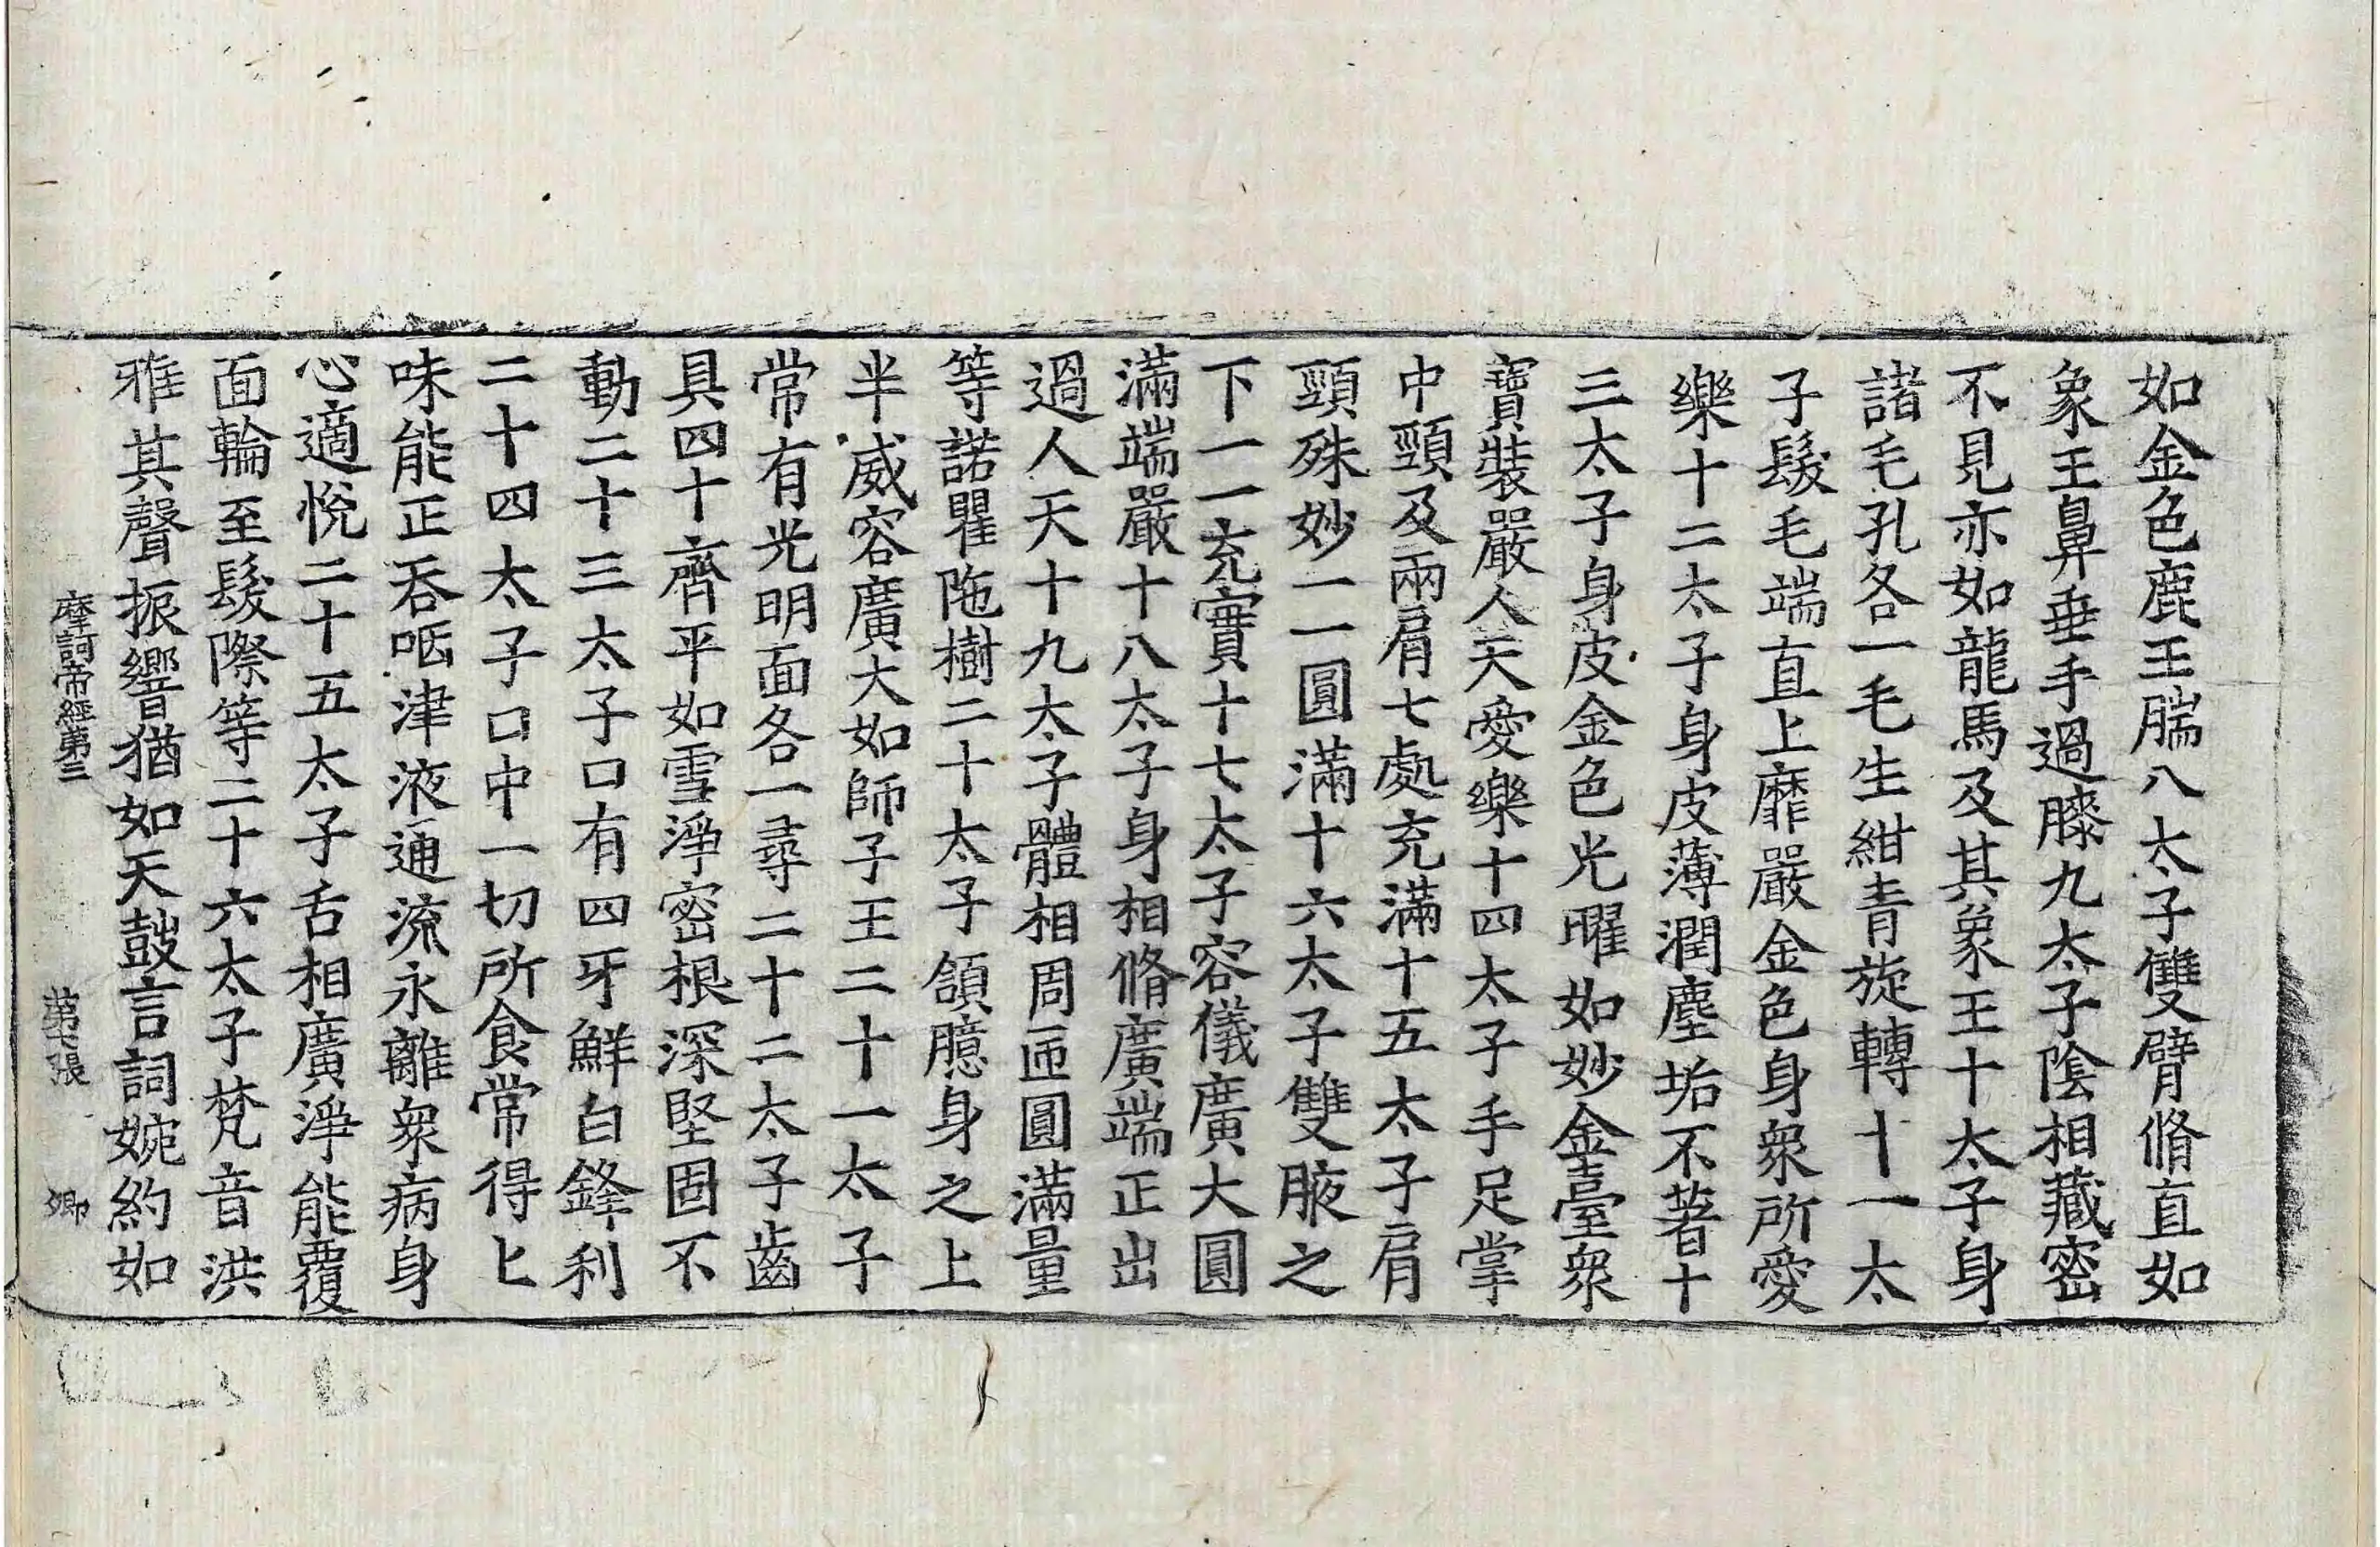 如金色鹿王腨八太子雙臂脩直如
象王鼻垂手過膝九太子陰相藏密
不見亦如龍馬及其象王十太子身
諸毛孔各一毛生紺青旋轉十一太
子髮毛端直上靡嚴金色身衆所愛
樂十二太子身皮薄潤塵垢不著十
三太子身皮金色光曜如妙金臺衆
寶裝嚴人天愛樂十四太子手足掌
中頸及兩肩七處充滿十五太子肩
頸殊妙一一圓滿十六太子雙腋之
下一一充實十七太子容儀廣大圓
滿端嚴十八太子身相脩廣端正出
過人天十九太子體相周匝圓滿量
等諾瞿陁樹二十太子頷臆身之上
半威容廣大如師子王二十一太子
常有光明面各一尋二十二太子齒
具四十齊平如雪淨密根深堅固不
動二十三太子口有四牙鮮白鋒利
二十四太子口中一切所食常得上
味能正吞咽津液通流永離衆病身
心適悅二十五太子舌相廣淨能覆
面輪至髮際等二十六太子梵音洪
雅其聲振響猶如天鼓言詞婉約如
摩訶帝經第三 第七張 卿